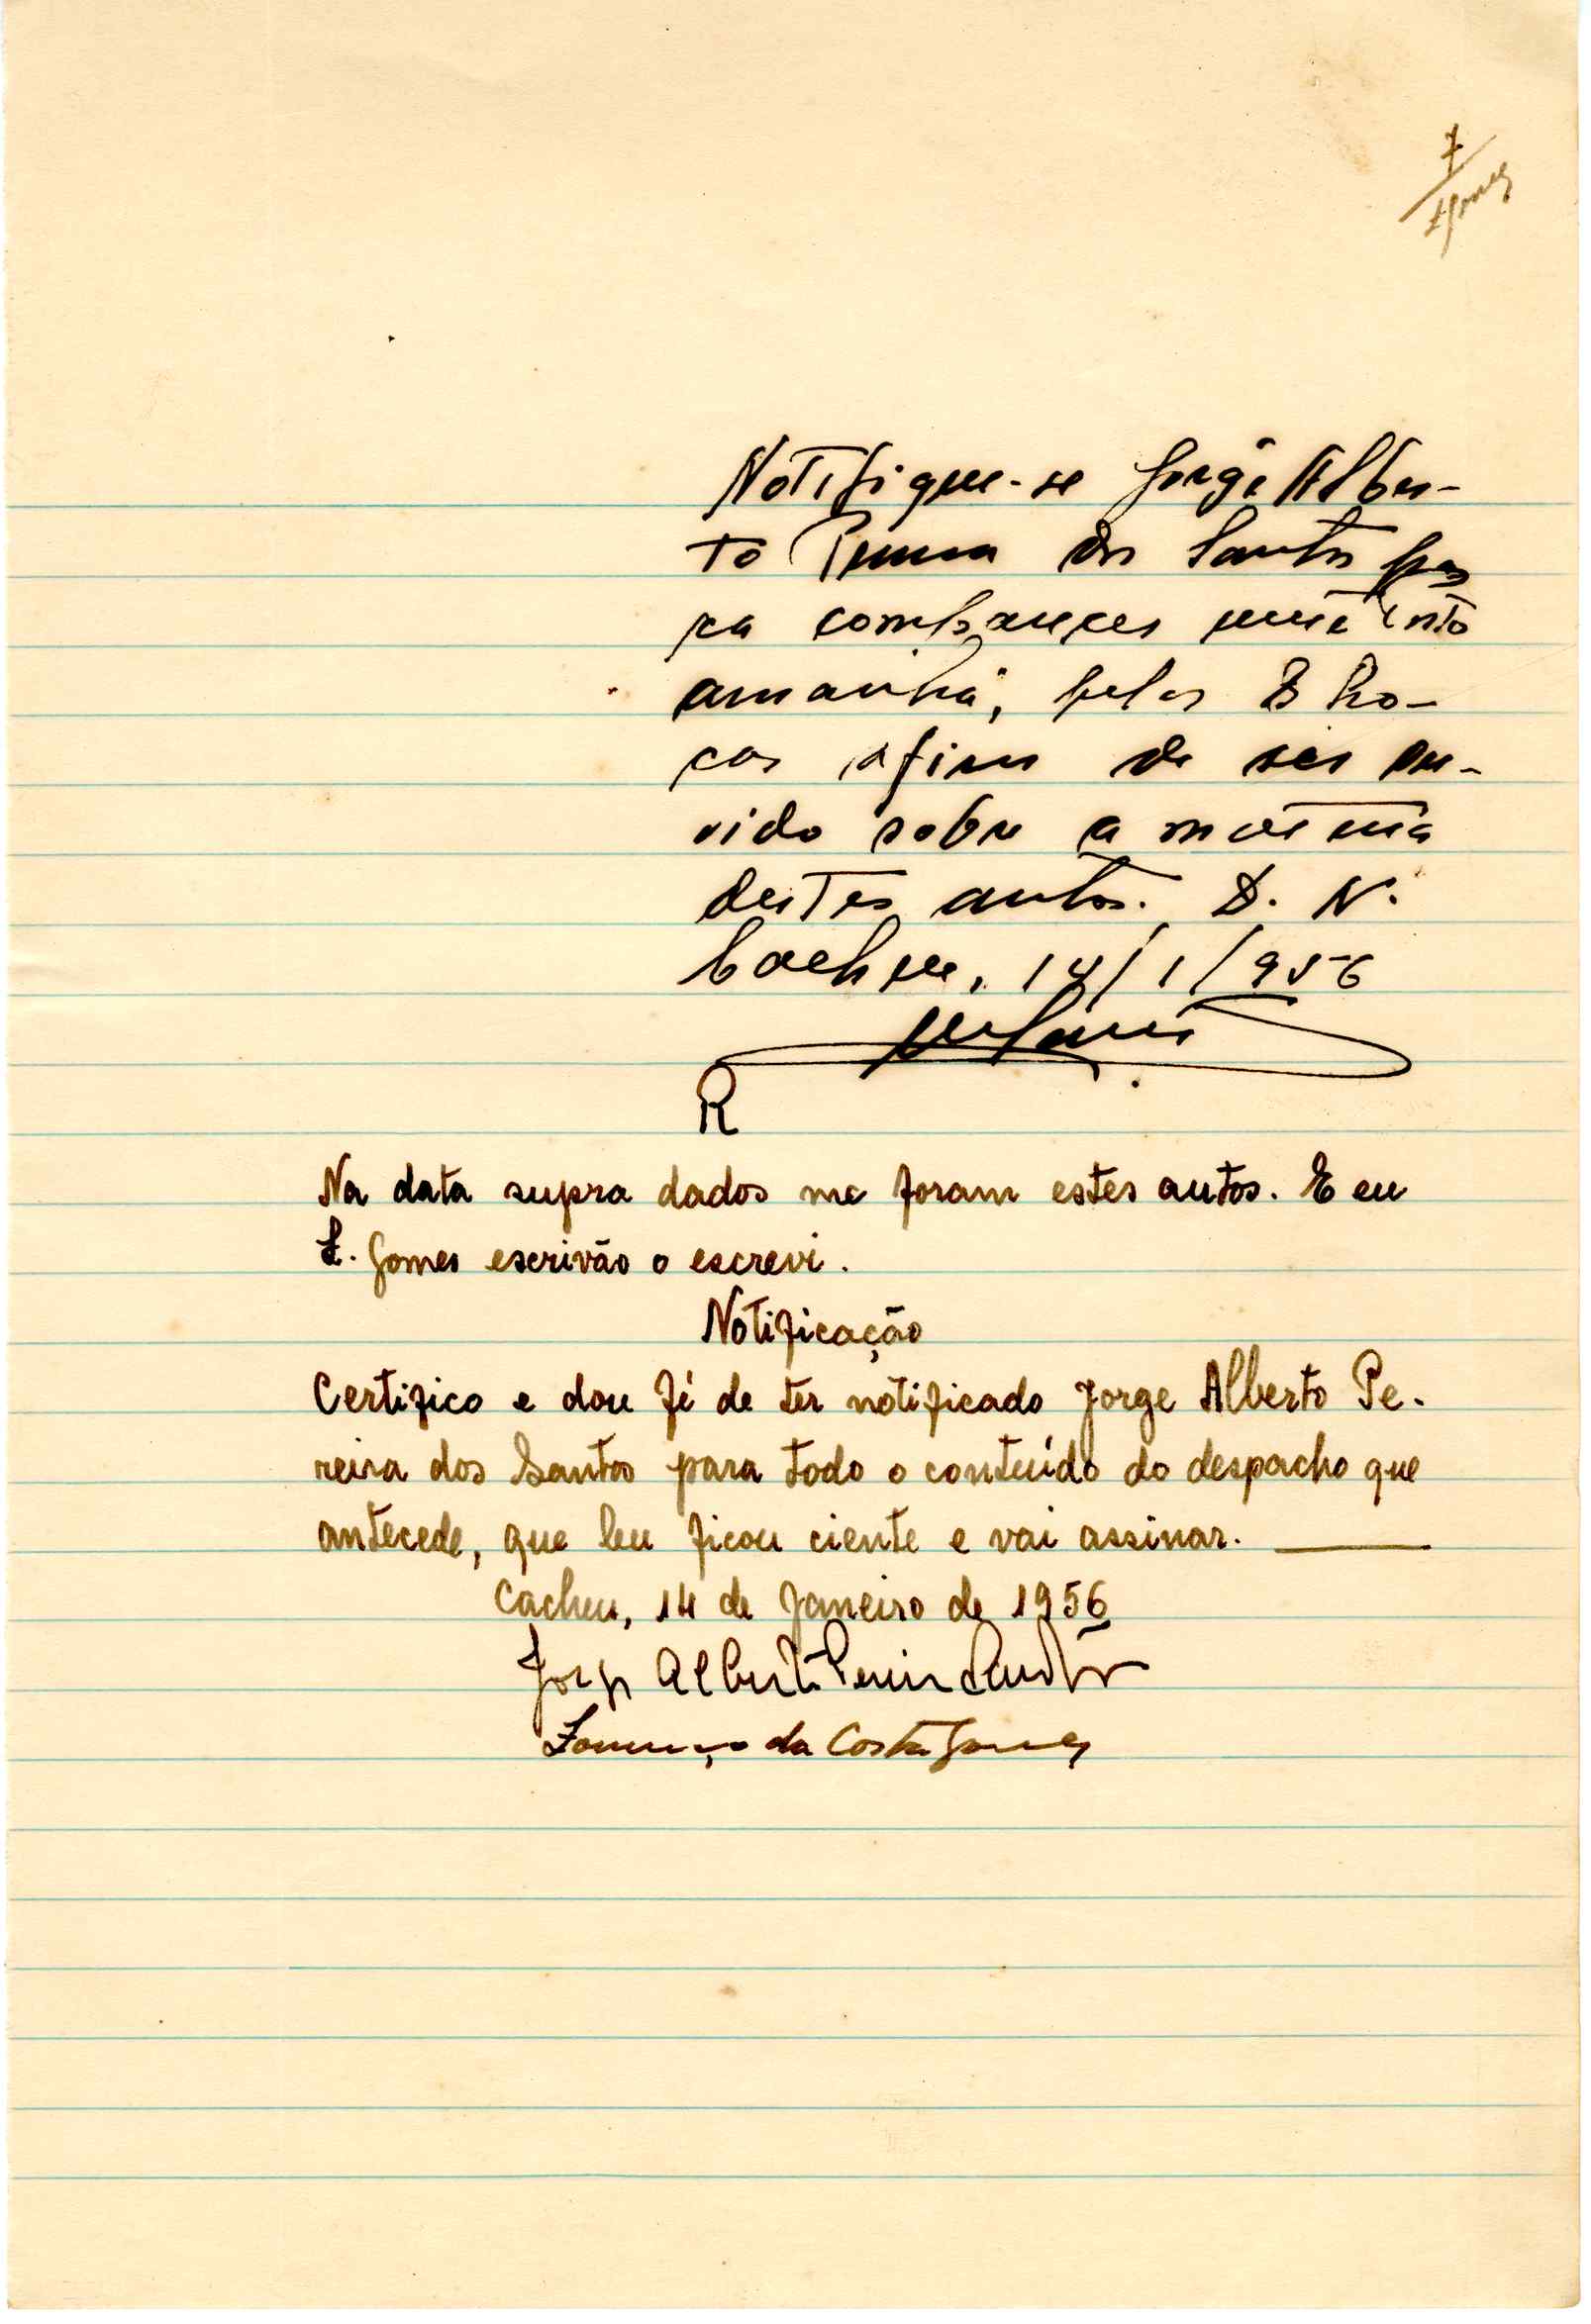 7
LGomes
Notifique-se Jorge Alber-
to Pereira dos Santos pa-
ra comparecer neste Posto
amanhã, pelas 8 ho-
ras afim de ser ou-
vido sobre a matéria
destes autos. D. N.
Cacheu, 14/1/956
R
Na data supra dados me foram estes autos. E eu
L. Gomes escrivão o escrevi.
Notificação
Certifico e dou fé de ter notificado Jorge Alberto Pe-
reira dos Santos para todo o conteúdo do despacho que
antecede, que leu ficou ciente e vai assinar.
Cacheu, 14 de Janeiro de 1956
Jorge Alberto Pereira Santos
Lourenço da Costa Gomes